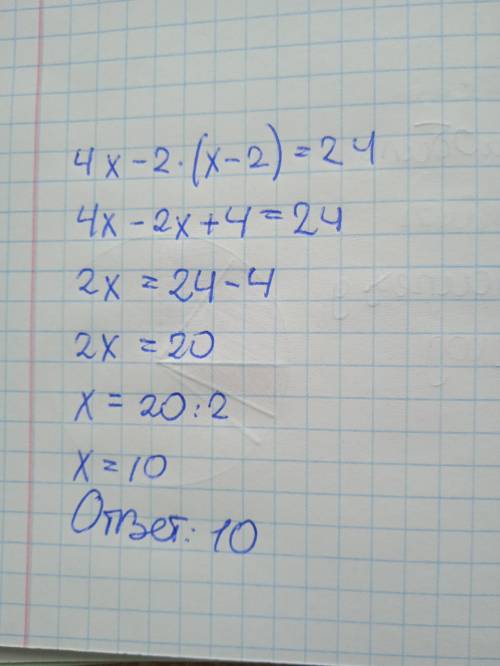 4x-2·(x-2)=24
4x-2x+4=24
2x=24-4
2x=20
x=20:2
x=10
Ответ: 10